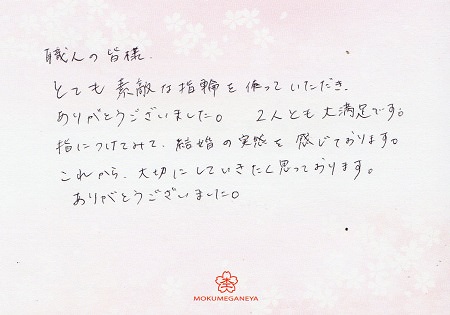 職人の皆様.
とても素敵な指輪を作っていただき、
ありがとうございました。 2人とも大満足です。
指につけてみて、結婚の実感を感じております。
これから、大切にしていきたく思っております。
ありがとうございました。
MOKUMEGANEYA